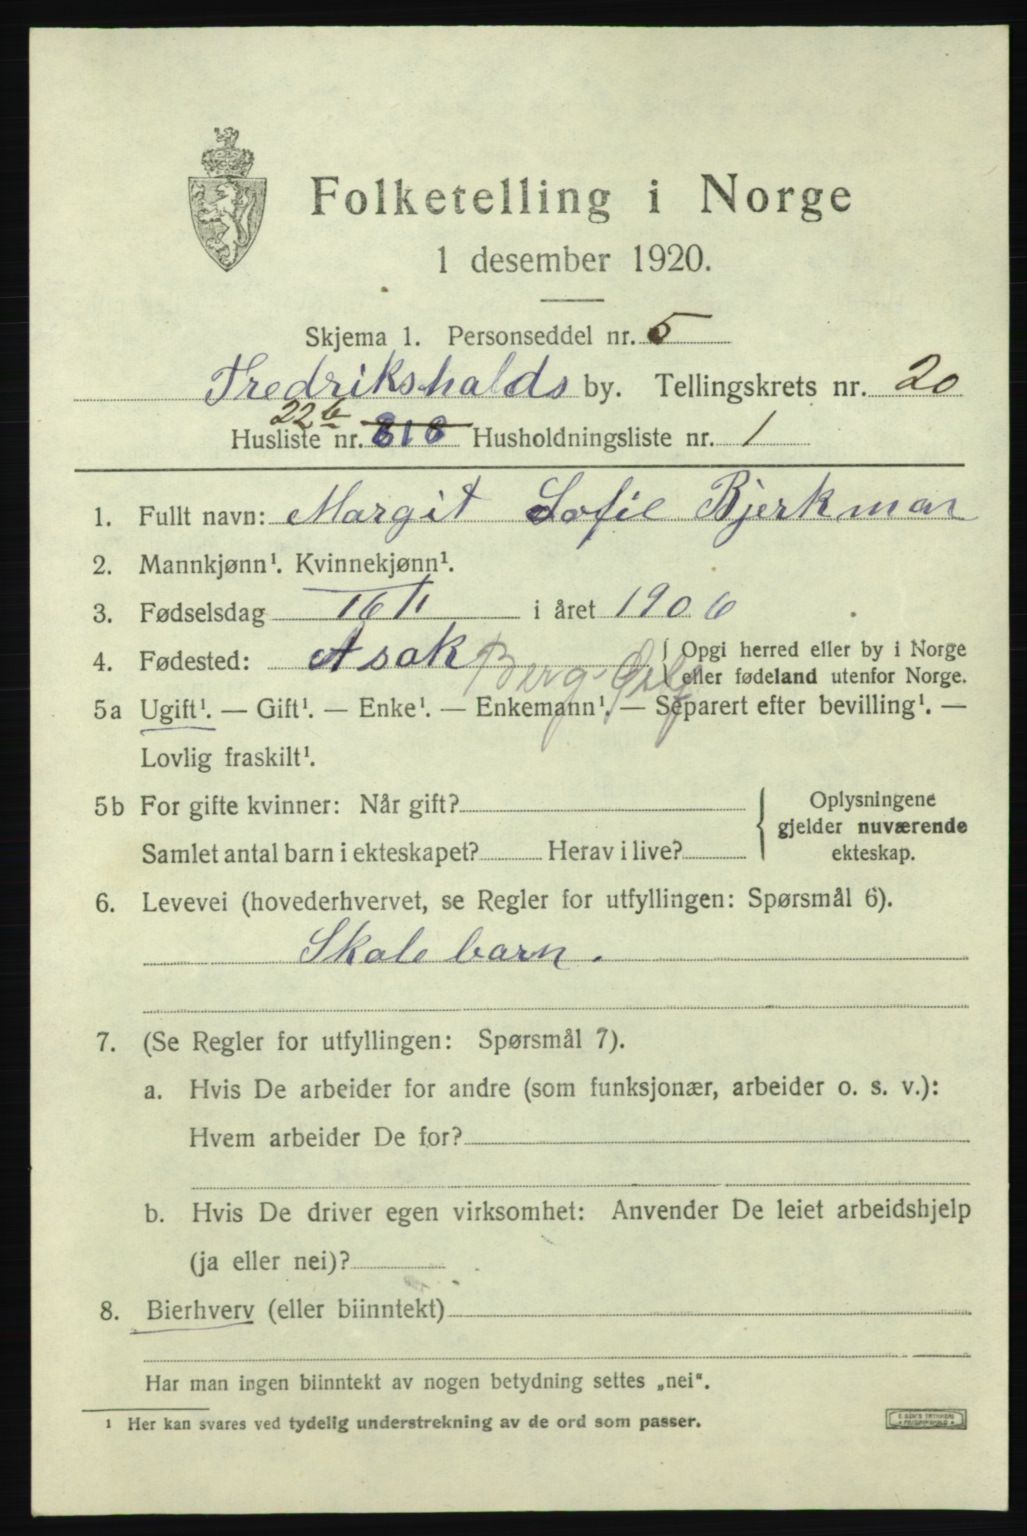 Folketelling i Norge
1 desember 1920.
Skjema 1. Personseddel nr. 5
Fredrikshalds by. Tellingskrets nr. 20
22b
Husliste nr. 818 Husholdningsliste nr. 1
1. Fullt navn: Margit Sofie Bjerkman
2. Mannkjønn¹. Kvinnekjønn¹.
3. Fødselsdag 16/11 i året 1906
4. Fødested: Asak Berg Østf { Opgi herred eller by i Norge
eller fødeland utenfor Norge.
5a Ugift¹. — Gift¹. — Enke¹. — Enkemann¹. — Separert efter bevilling¹. —
Lovlig fraskilt¹.
5b For gifte kvinner: Når gift? { Oplysningene
gjelder nuværende
Samlet antal barn i ekteskapet? Herav i live? ekteskap.
6. Levevei (hovederhvervet, se Regler for utfyllingen: Spørsmål 6).
Skole barn.
7. (Se Regler for utfyllingen: Spørsmål 7).
a. Hvis De arbeider for andre (som funksjonær, arbeider o. s. v.):
Hvem arbeider De for?
b. Hvis De driver egen virksomhet: Anvender De leiet arbeidshjelp
(ja eller nei)?
8. Bierhverv (eller biinntekt)
Har man ingen biinntekt av nogen betydning settes „nei".
¹ Her kan svares ved tydelig understrekning av de ord som passer.